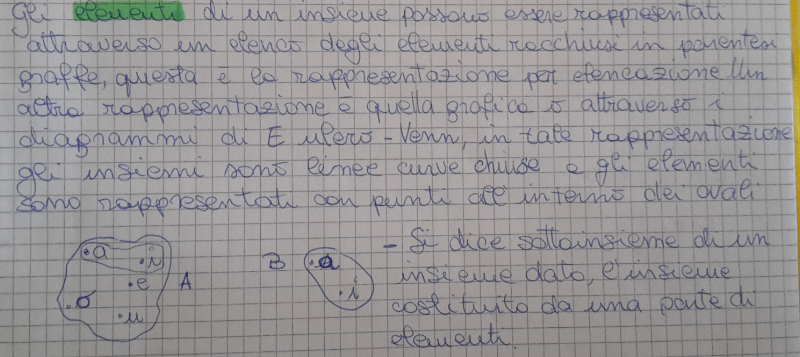 gli elementi di un insieme possono essere rappresentati
attraverso un elenco degli elementi racchiusi in parentesi
graffe, questa è la rappresentazione per elencazione. Un
altra rappresentazione è quella grafica o attraverso i
diagrammi di Eulero-Venn, in tale rappresentazione
gli insiemi sono linee curve chiuse e gli elementi
sono rappresentati con punti all'interno dei ovali
.a .i
.e A
.o
.u
B .a
.i
- Si dice sottoinsieme di un
insieme dato, l'insieme
costituito da una parte di
elementi.